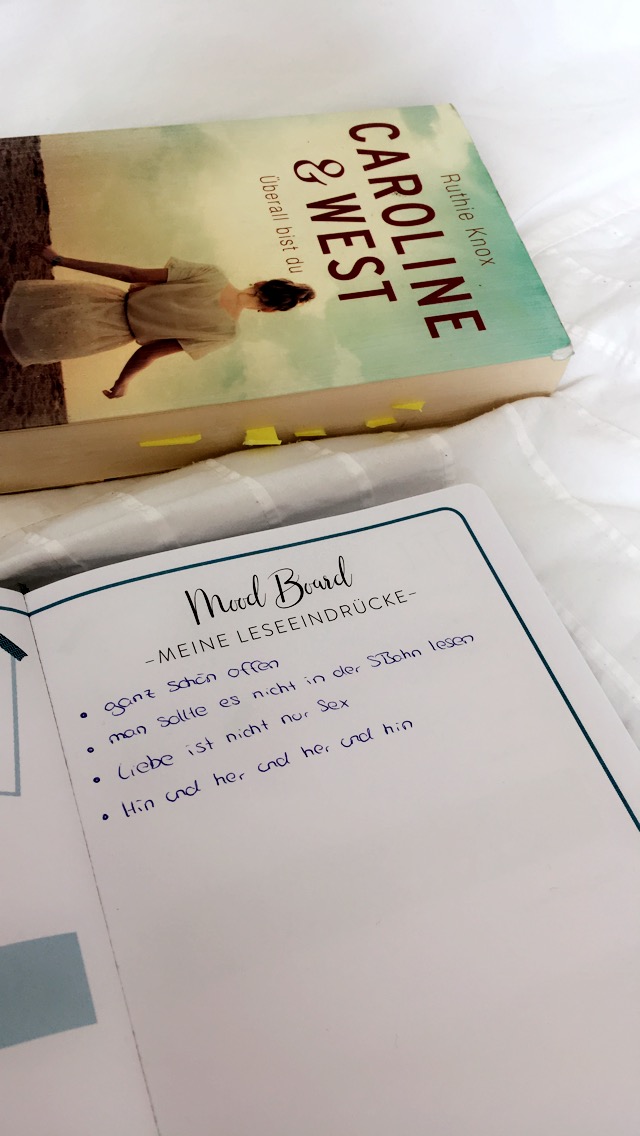 Ruthie Knox
CAROLINE
& WEST
Überall bist du
Mood Board
-MEINE LESEEINDRÜCKE-
• ganz schön offen
• man sollte es nicht in der SBahn lesen
• Liebe ist nicht nur Sex
• Hin und her und her und hin